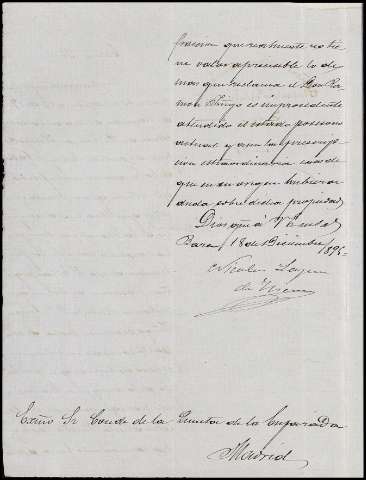 fracion que realmente no tie
ne valor apreciable lo de
mas que reclama el Don Ra
mon Iñigo es improcedente
atendido el estado posesorio
actual y aun la prescrip
cion estraordinaria caso de
que en un origen hubiera
duda sobre dicha propiedad
Dios gue á V
18 de Diciembre 189
Nicolas
de
Exmo Sr Conde de la Quinta de la Enjarada
Madrid